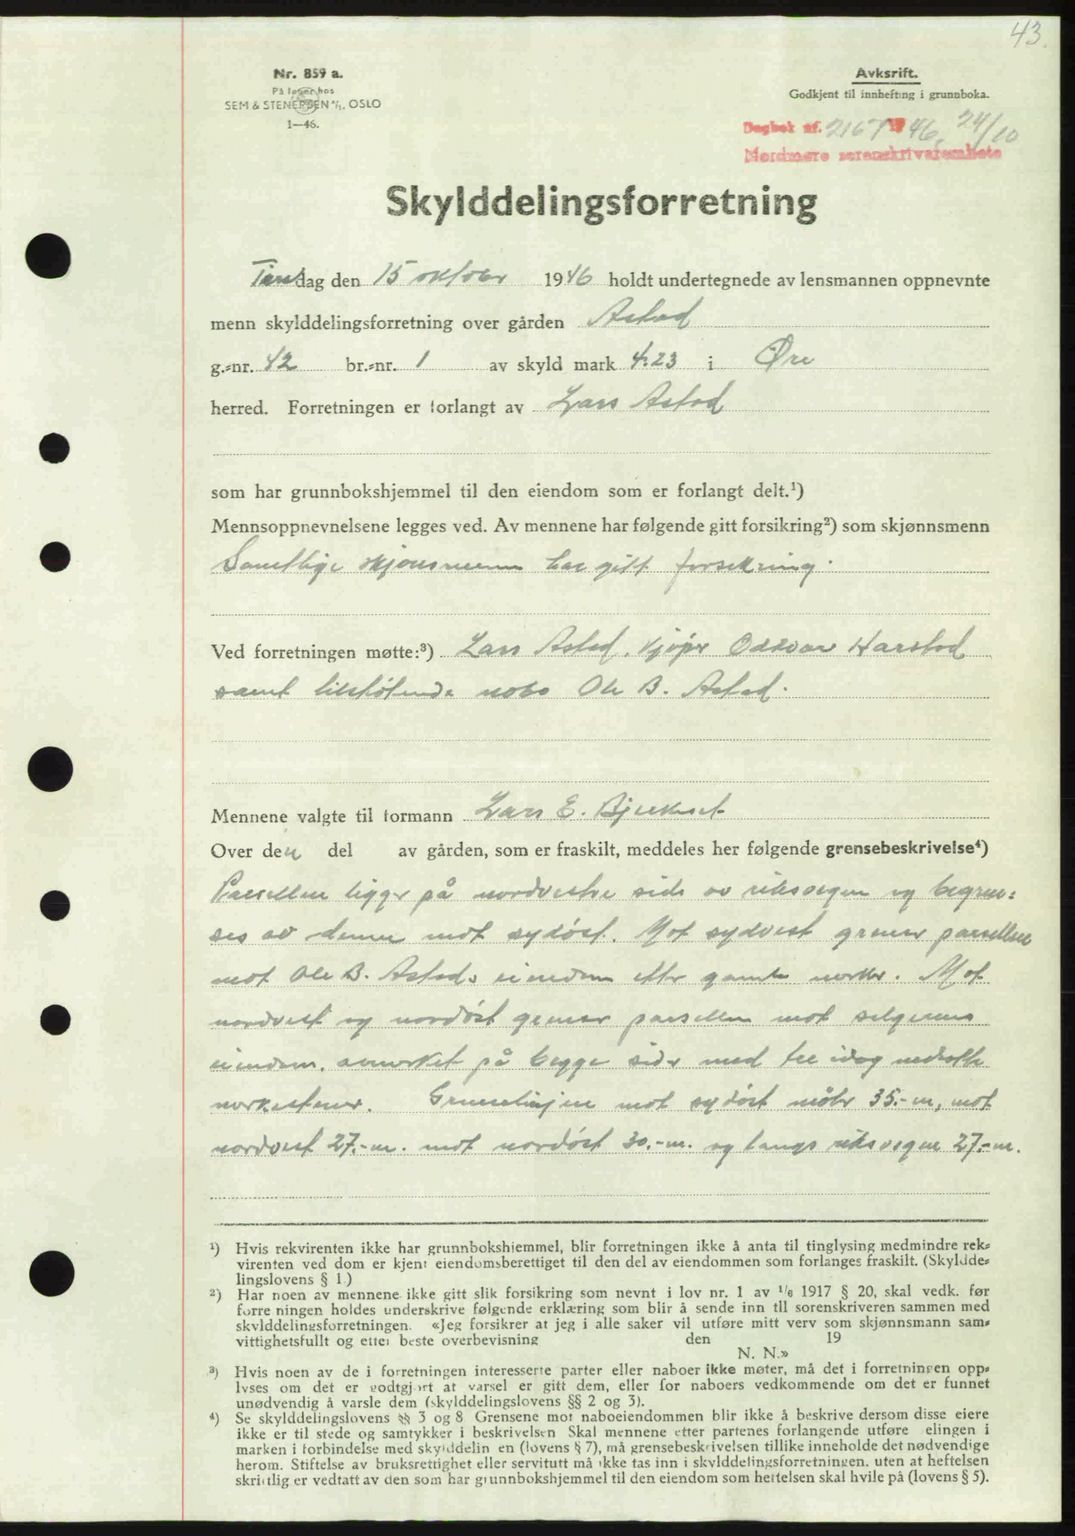 43.
Nr. 859 a.
På lager hos
SEM & STENERSEN A/S, OSLO
1—46.
Avksrift.
Godkjent til innhefting i grunnboka.
Dagbok nr. 2167 1946, 24/10
Nordmøre sorenskriverembete
Skylddelingsforretning
Tirsdag den 15 oktober 1946 holdt undertegnede av lensmannen oppnevnte
menn skylddelingsforretning over gården Astad
g.-nr. 42 br.-nr. 1 av skyld mark 4.23 i Øre
herred. Forretningen er forlangt av Lars Astad
som har grunnbokshjemmel til den eiendom som er forlangt delt.¹)
Mennsoppnevnelsene legges ved. Av mennene har følgende gitt forsikring²) som skjønnsmenn
Samtlige skjønsmenn har gitt forsikring.
Ved forretningen møtte:³) Lars Astad, kjøper Oddvar Harstad
samt tilstøtende nabo Ole B. Astad.
Mennene valgte til formann Lars E.
Over den del av gården, som er fraskilt, meddeles her følgende grensebeskrivelse⁴)
Parsellen ligger på nordvestre side av riksvegen og begren:
ses av denne mot sydøst. Mot sydvest grenser parsellen
mot Ole B. Astads eiendom etter gamle merker. Mot
nordvest og nordøst grenser parsellen mot selgerens
eiendom, avmerket på begge sider med tre idag nedsatte
merkestener. Grenselinjen mot sydøst måler 35.-m, mot
nordvest 27.-m. mot nordøst 30.-m. og langs riksvegen 27.-m.
¹) Hvis rekvirenten ikke har grunnbokshjemmel, blir forretningen ikke å anta til tinglysing medmindre rek-
virenten ved dom er kjent eiendomsberettiget til den del av eiendommen som forlanges fraskilt. (Skyldde-
lingslovens § 1.)
²) Har noen av mennene ikke gitt slik forsikring som nevnt i lov nr. 1 av 1/6 1917 § 20, skal vedk. før
forretningen holdes underskrive følgende erklæring som blir å sende inn til sorenskriveren sammen med
skylddelingsforretningen. «Jeg forsikrer at jeg i alle saker vil utføre mitt verv som skjønnsmann sam-
vittighetsfullt og etter beste overbevisning den 19
N. N.»
³) Hvis noen av de i forretningen interesserte parter eller naboer ikke møter, må det i forretningen opp-
lyses om det er godtgjort at varsel er gitt dem, eller for naboers vedkommende om det er funnet
unødvendig å varsle dem (skylddelingslovens §§ 2 og 3).
⁴) Se skylddelingslovens §§ 3 og 8. Grensene mot naboeiendommen blir ikke å beskrive dersom disse eiere
ikke er til stede og samtykker i beskrivelsen. Skal mennene etter partenes forlangende utføre delingen i
marken i forbindelse med skylddelingen (lovens § 7), må grensebeskrivelsen tillike inneholde det nødvendige
herom. Stiftelse av bruksrettighet eller servitutt må ikke tas inn i skylddelingsforretningen, uten at heftelsen
skriftlig er vedtatt av den som har grunnbokshjemmel til den eiendom som heftelsen skal hvile på (lovens § 5).